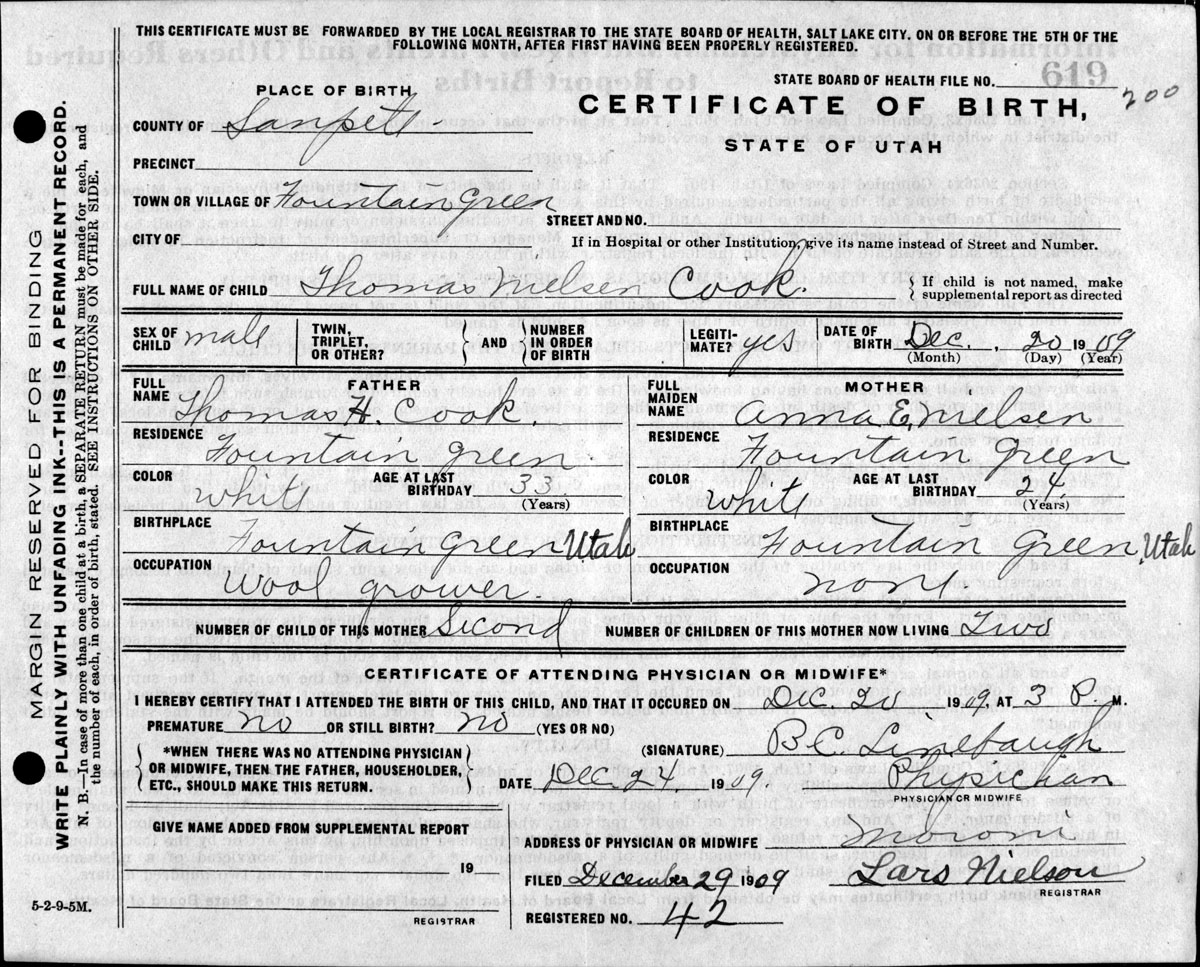 THIS CERTIFICATE MUST BE FORWARDED BY THE LOCAL REGISTRAR TO THE STATE BOARD OF HEALTH, SALT LAKE CITY. ON OR BEFORE THE 5TH OF THE
FOLLOWING MONTH, AFTER FIRST HAVING BEEN PROPERLY REGISTERED.
STATE BOARD OF HEALTH FILE NO. 619
200
PLACE OF BIRTH.
CERTIFICATE OF BIRTH,
STATE OF UTAH
COUNTY OF Sanpete
PRECINCT
TOWN OR VILLAGE OF Fountain Green
STREET AND NO.
CITY OF
If in Hospital or other Institution, give its name instead of Street and Number.
FULL NAME OF CHILD Thomas Nielsen Cook. { If child is not named, make
supplemental report as directed
SEX OF CHILD male TWIN, TRIPLET, OR OTHER? } AND { NUMBER IN ORDER OF BIRTH LEGITI-MATE? yes DATE OF BIRTH Dec. 20 1909
(Month) (Day) (Year)
FATHER
FULL NAME Thomas H. Cook.
RESIDENCE Fountain Green
COLOR White AGE AT LAST BIRTHDAY 33 (Years)
BIRTHPLACE Fountain Green Utah
OCCUPATION Wool grower.
MOTHER
FULL MAIDEN NAME Anna E. Nielsen
RESIDENCE Fountain Green
COLOR White AGE AT LAST BIRTHDAY 24 (Years)
BIRTHPLACE Fountain Green, Utah
OCCUPATION none
NUMBER OF CHILD OF THIS MOTHER Second NUMBER OF CHILDREN OF THIS MOTHER NOW LIVING Two
CERTIFICATE OF ATTENDING PHYSICIAN OR MIDWIFE*
I HEREBY CERTIFY THAT I ATTENDED THE BIRTH OF THIS CHILD, AND THAT IT OCCURED ON Dec. 20, 1909, AT 3 P. M.
PREMATURE no OR STILL BIRTH? no (YES OR NO)
(SIGNATURE) B.C. Linebaugh
*WHEN THERE WAS NO ATTENDING PHYSICIAN
OR MIDWIFE, THEN THE FATHER, HOUSEHOLDER,
ETC., SHOULD MAKE THIS RETURN.
DATE Dec 24 1909. Physichan
PHYSICIAN OR MIDWIFE
GIVE NAME ADDED FROM SUPPLEMENTAL REPORT
19
REGISTRAR
ADDRESS OF PHYSICIAN OR MIDWIFE Moroni
FILED December 29 1909 Lars Nielson
REGISTRAR
REGISTERED NO. 42
5-2-9-5M.
MARGIN RESERVED FOR BINDING
WRITE PLAINLY WITH UNFADING INK--THIS IS A PERMANENT RECORD.
N. B.--In case of more than one child at a birth, a SEPARATE RETURN must be made for each, and
the number of each, in order of birth, stated. SEE INSTRUCTIONS ON OTHER SIDE.